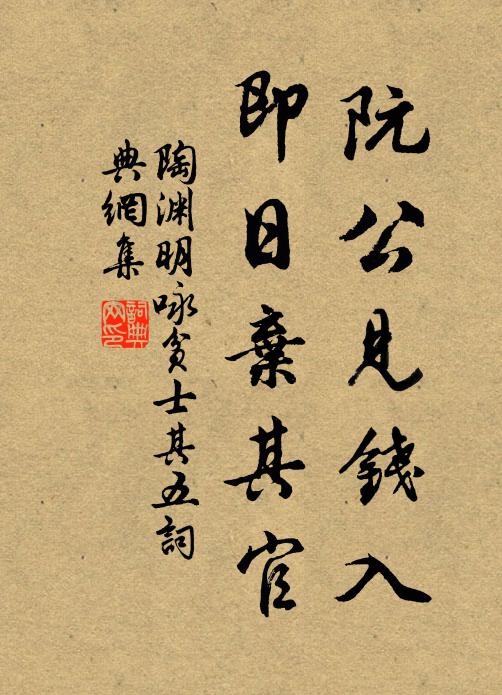 阮公見錢入
即日棄其官
陶淵明咏貧士其五詞
典網集
詞典
网印